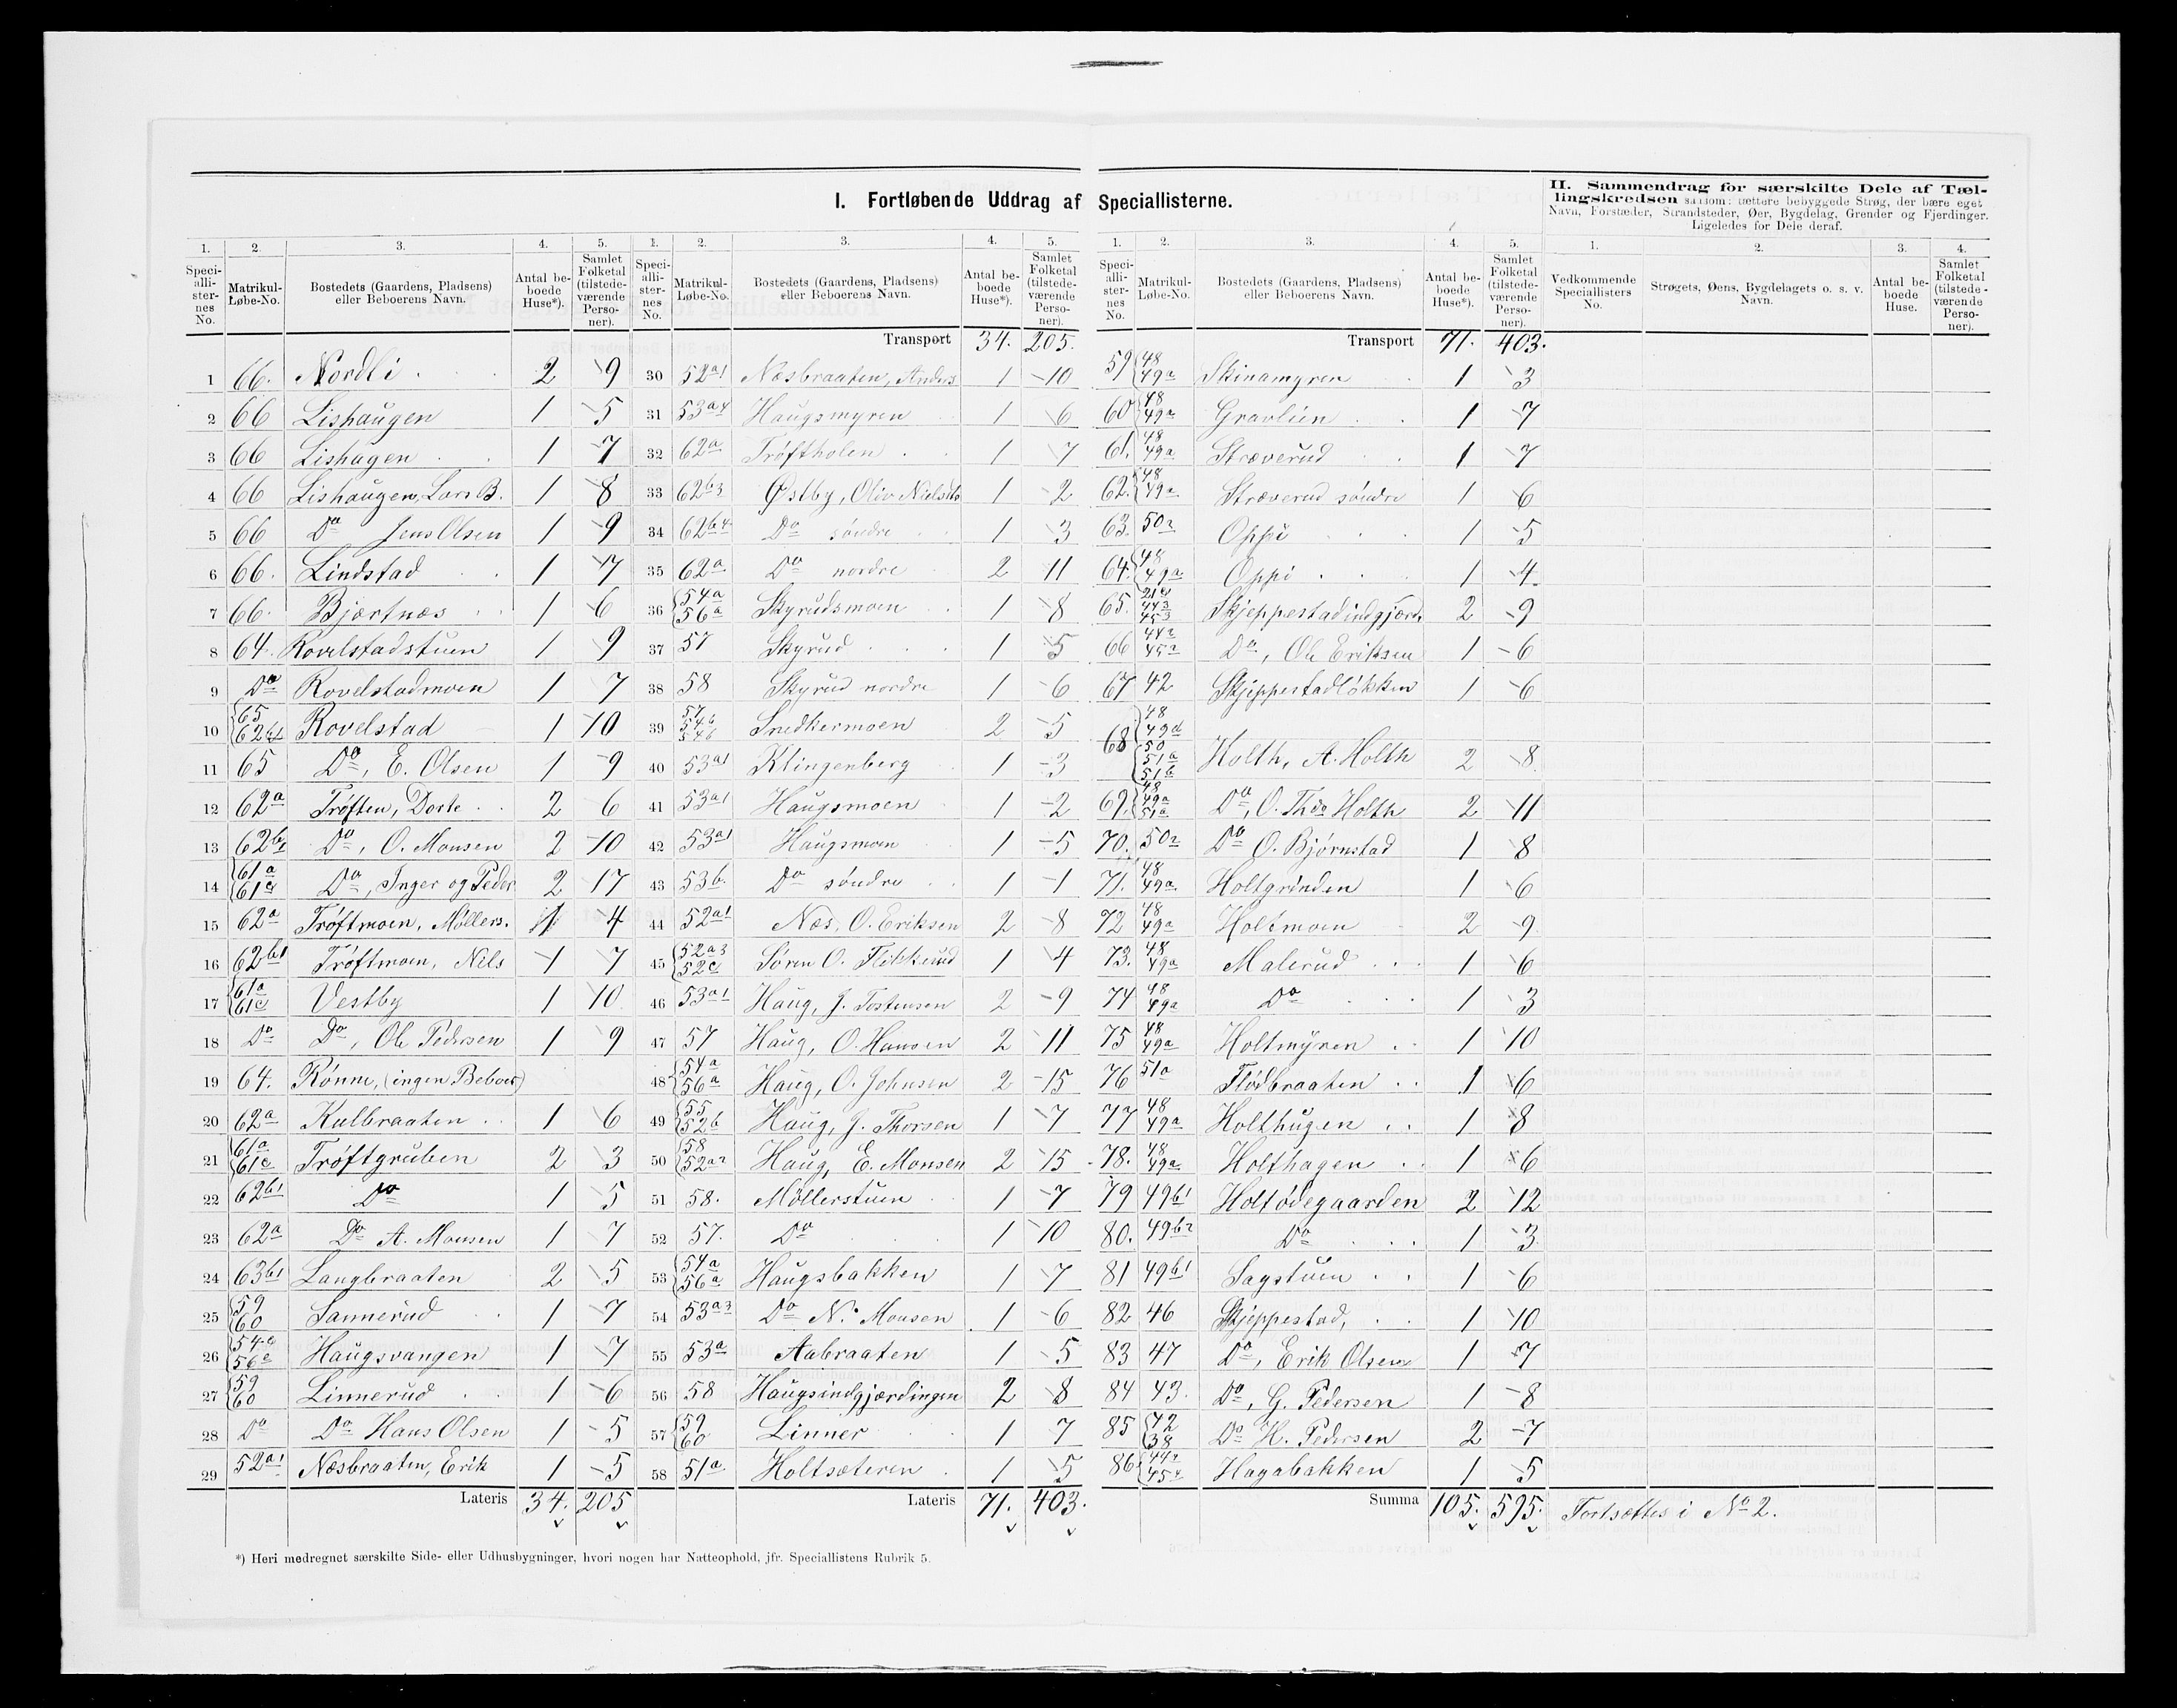 I. Fortløbende Uddrag af Speciallisterne.
II. Sammendrag for særskilte Dele af Tællingskredsen saasom: tættere bebyggede Strøg, der bære eget
Navn, Forstæder, Strandsteder, Øer, Bygdelag, Grender og Fjerdinger.
Ligeledes for Dele deraf.
1. 2. 3. 4. 5.
Speciallisternes No. Matrikul-Løbe-No. Bostedets (Gaardens, Pladsens) eller Beboerens Navn. Antal beboede Huse*). Samlet Folketal (tilstedeværende Personer).
1 66. Nordli 2 9
2 66 Lishaugen 1 5
3 66 Lishagen 1 7
4 66 Lishaugen, Lars B. 1 8
5 66 Do Jens Olsen 1 9
6 66. Lindstad 1 7
7 66. Bjærtnæs 1 6
8 64. Rovelstadstuen 1 9
9 Do Rovelstadmoen 1 7
10 65 62b1 Rovelstad 1 10
11 65 Do, E. Olsen 1 9
12 62a Trøften, Dorte 2 6
13 62b1 Do, O. Monsen 2 10
14 61a 61c Do, Inger og Peder 2 17
15 62a Trøftmoen, Møllers. 1 4
16 62b1 Trøftmoen, Nils 1 7
17 61a 61c Vestby 1 10
18 Do Do, Ole Pedersen 1 9
19 64. Rønne, (ingen Beboer)
20 62a Kulbraaten 1 6
21 61a 61c Trøftgruben 2 3
22 62b1 Do 1 5
23 62a Do A. Monsen 1 7
24 63b1 Langbraaten 2 5
25 59 60 Sannerud 1 7
26 54c 56c Haugsvangen 1 7
27 59 60 Linnerud 1 6
28 Do Do Hans Olsen 1 5
29 52a1 Næsbraaten, Erik 1 5
Lateris 34. 205
1. 2. 3. 4. 5.
Speciallisternes No. Matrikul-Løbe-No. Bostedets (Gaardens, Pladsens) eller Beboerens Navn. Antal beboede Huse*). Samlet Folketal (tilstedeværende Personer).
Transport 34. 205.
30 52a1 Næsbraaten, Anders 1 10
31 53a4 Haugsmyren 1 6
32 62a Trøftholen 1 7
33 62b3 Østby, Oliv 1 2
34 62b4 Do søndre 1 3
35 62a Do nordre 2 11
36 54a 56a Skyrudsmoen 1 8
37 57 Skyrud 1 5
38 58 Skyrud nordre 1 6
39 57 54b Snedkermoen 2 5
40 53a1 Klingenberg 1 3
41 53a1 Haugsmoen 1 2
42 53a1 Haugsmoen 1 5
43 53b. Do søndre 1 1
44 52a1 Næs, O. Eriksen 2 8
45 52a3 52c Søren O. Flikkerud 1 4
46 53a1 Haug, J. Tostensen 2 9
47 57 Haug, O. Hansen 2 11
48 54a 56a Haug, O. Johnsen 2 15
49 55 52b Haug, J. Thorsen 1 7
50 58 52a2 Haug, E. Monsen 2 15
51 58. Møllerstuen 1 7
52 57. Do 1 10
53 54a 56a Haugsbakken 1 7
54 53a3 Do N. Monsen 1 6
55 53a Aabraaten 1 5
56 58 Haugsindgjærdingen 2 8
57 59 60 Linner 1 7
58 51a Holtsæteren 1 5
Lateris 71. 403.
1. 2. 3. 4. 5.
Speciallisternes No. Matrikul-Løbe-No. Bostedets (Gaardens, Pladsens) eller Beboerens Navn. Antal beboede Huse*). Samlet Folketal (tilstedeværende Personer).
Transport 71. 403.
59 48 49a Skinamyren 1 3
60 48 49a Gravlien 1 7
61. 48 49a Stræverud 1 7
62. 48 49a Stræverud søndre 1 6
63. 50 Oppi 1 5
64. 48 49a Oppi 1 4
65. 44 3 45 3 Skjeppestadindgjærd. 2 9
66 44 45 Do, Ole Eriksen 1 6
67 42 Skjeppestadløkken 1 6
68 48 49a 50 51a 51b Holth, A. Holth 2 8
69. 48 49a 51a Do, O. Holth 2 11
70. 50 Do O. Bjørnstad 1 8
71. 48 49a Holtgrinden 1 6
72 48 49a Holtmoen 2 9
73. 48 49a Malerud 1 6
74 48 49a Do 1 3
75 48 49a Holtmyren 1 10
76 51a Flødbraaten 1 6
77 48 49a Holthugen 1 8
78. 48 49a Holthagen 1 6
79 49b1 Holtødegaarden 2 12
80. 49b2 Do 1 3
81 49b1 Sagstuen 1 6
82 46 Skjeppestad, 1 10
83 47 Do, Erik Olsen 1 7
84 43. Do, G. Pedersen 1 8
85 42 38 Do H. Pedersen 2 7
86 44 45 Hagabakken 1 5
Summa 105. 595.
1. 2. 3. 4.
Vedkommende Speciallisters No. Strøgets, Øens, Bygdelagets o. s. v. Navn. Antal beboede Huse. Samlet Folketal (tilstedeværende Personer).
Fortsættes i No 2.
*) Heri medregnet særskilte Side- eller Udhusbygninger, hvori nogen har Natteophold, jfr. Speciallistens Rubrik 5.